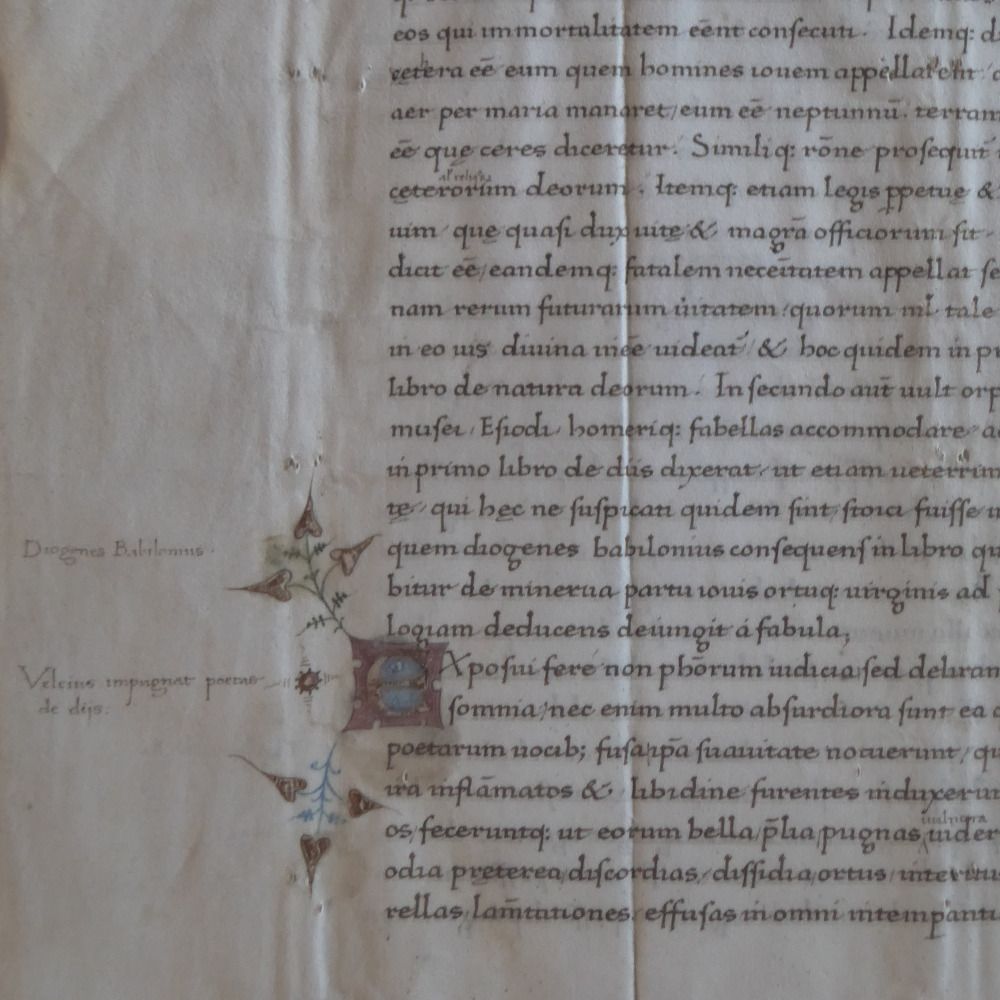 eos qui immortalitatem eēnt consecuti. Idemq:
cetera eē eum quem homines iouem appellarent
aer per maria manaret, eum eē neptunnū. terram
eē que ceres diceretur. Similiq: rōne prosequit̄
al' reliquor
ceterorum deorum. Itemq: etiam legis ꝑpetuę &
uim que quasi dux uitę & magrā officiorum sit
dicat eē, eandemq: fatalem necēitatem appellat
nam rerum futurarum ūitatem. quorum nil tale
in eo uis diuina ineē uideat̄ & hoc quidem in
libro de natura deorum. In secundo aūt uult
musei. Esiodi. homeriq: fabellas accommodare
in primo libro de diis dixerat, ut etiam
te, qui hęc ne suspicati quidem sint, stoici fuisse
Diogenes Babilonius.
quem diogenes babilonius consequens in libro
bitur de minerua partu iouis ortuq: uirginis ad
logiam deducens deiungit á fabula;
Velcius impugnat poetas
de dijs.
EXposui fere non phōrum iudicia, sed
somnia, nec enim multo absurdiora sunt ea
poetarum uocib; fusa, ip̄a suauitate nocuerunt,
ira inflāmatos & libidine furentes
os, feceruntq: ut eorum bella, p̄lia, pugnas,
uulnera
odia preterea, discordias, dissidia, ortus,
rellas, lam̄tationes, effusas in omni